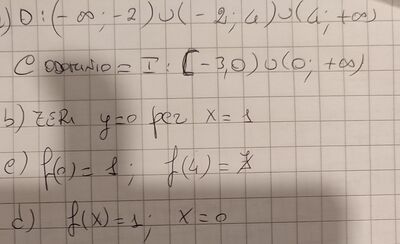 ) D: (-∞; -2) ∪ (-2; 4) ∪ (4; +∞)
Codominio = I: [-3,0) ∪ (0; +∞)
b) ZERI y=0 per x=1
c) f(0)= 1; f(4)=
d) f(x)=1; x=0